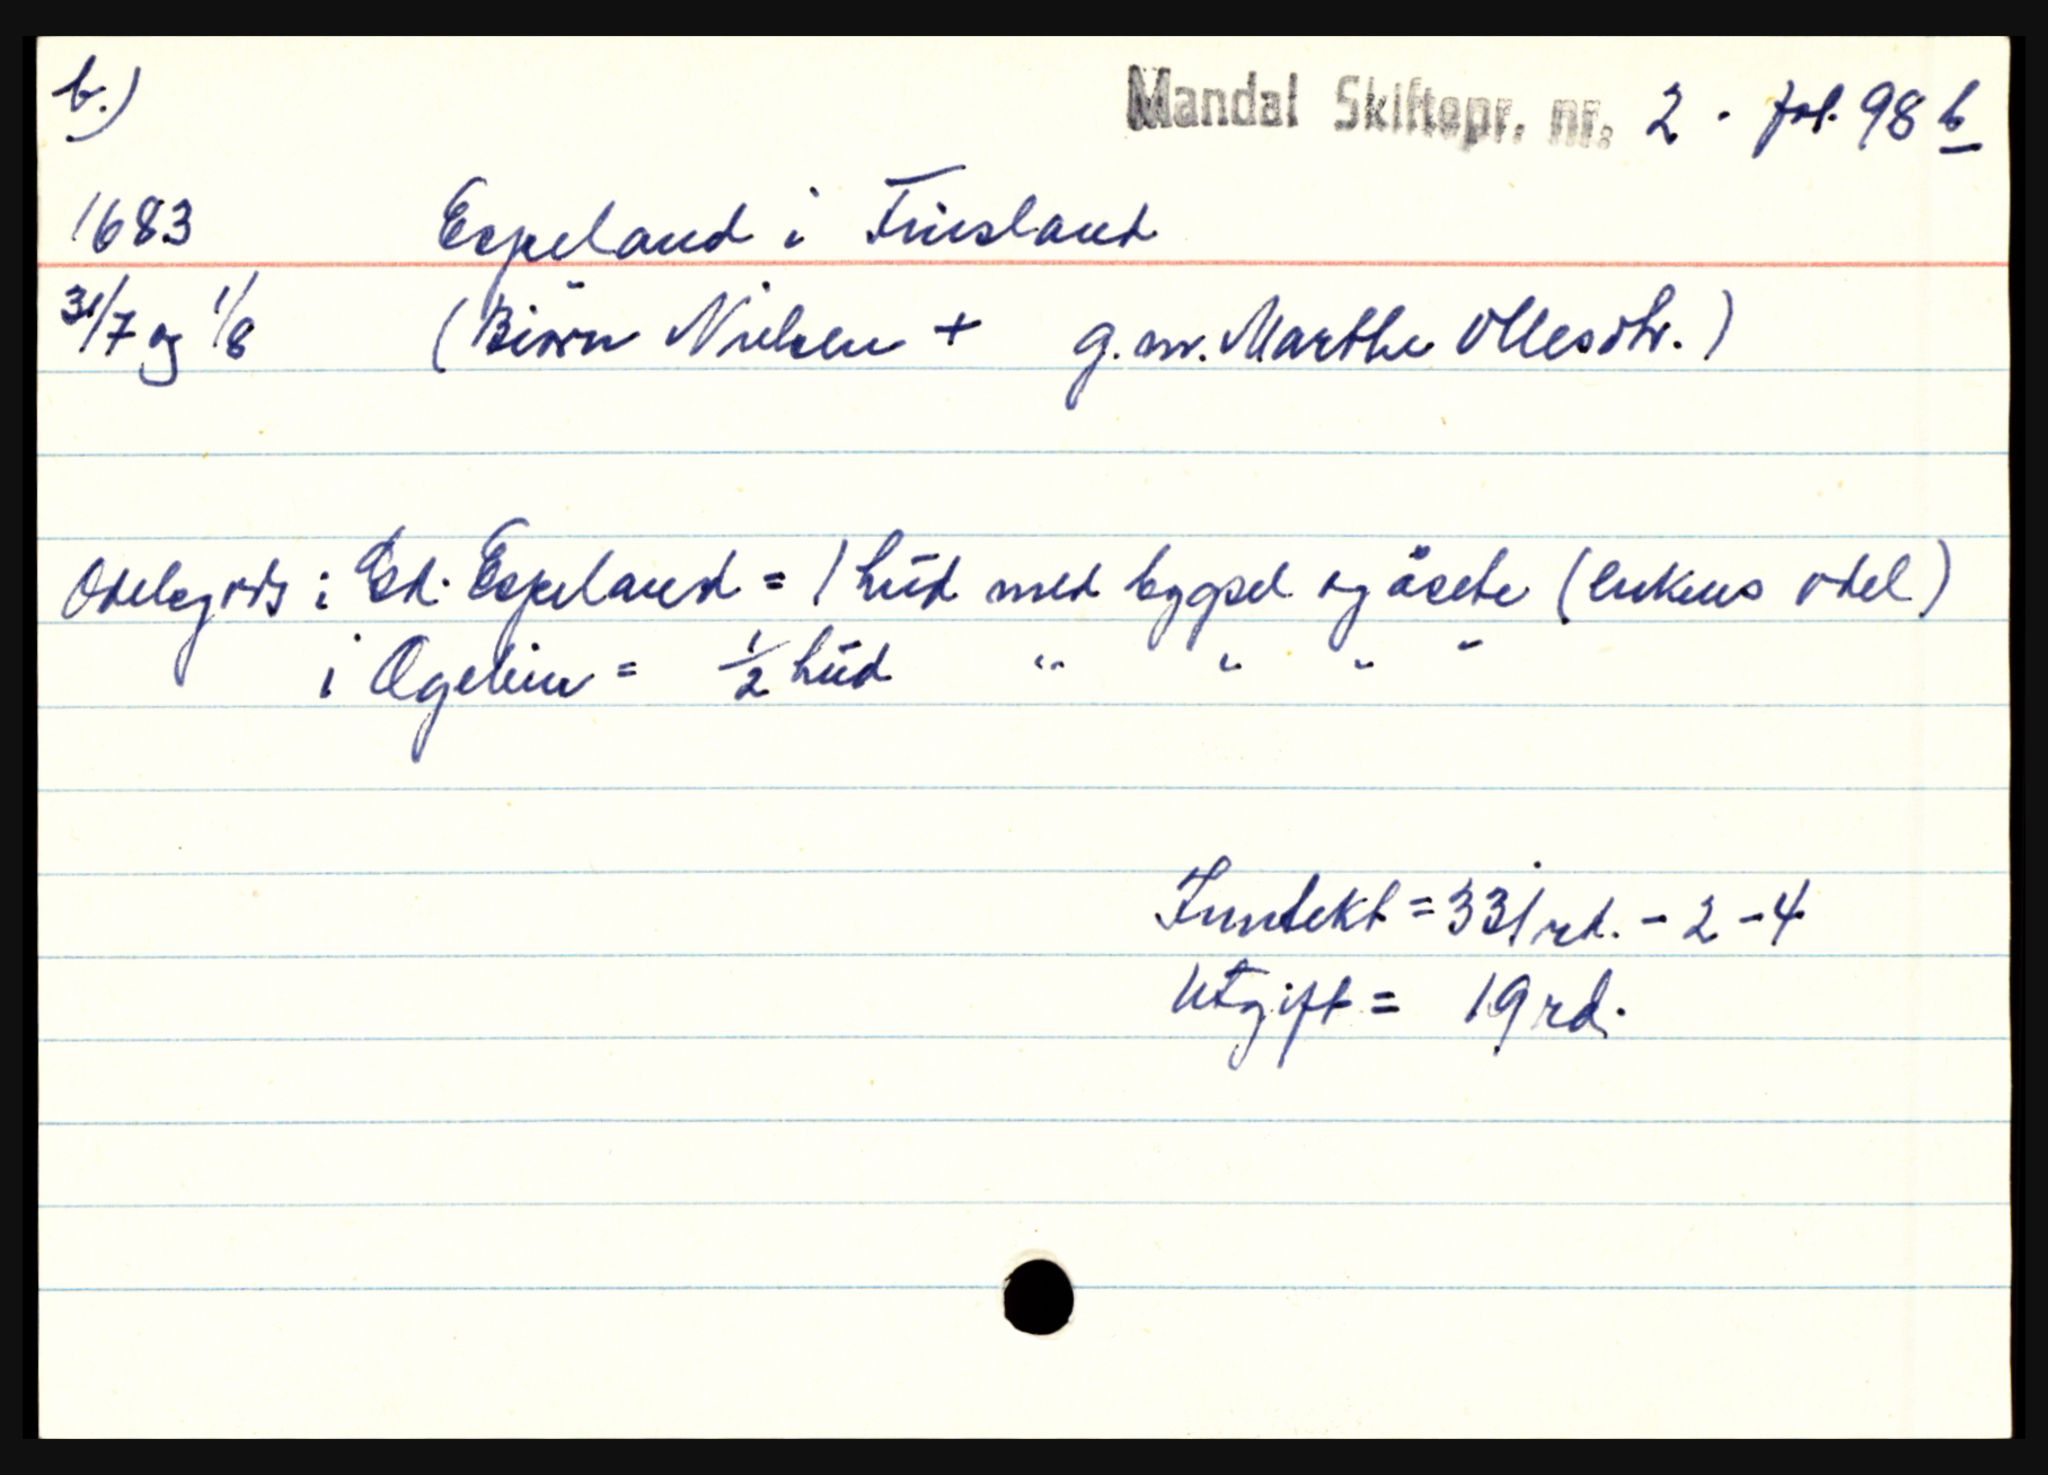 b.) Mandal Skiftepr. nr. 2 - fol. 98 b
1683 Espeland i Finsland
31/7 og 1/8 (Biörn Nielsen + g.m. Marthe Ollesdtr.)
Odelsgods i Ed. Espeland = 1 hud med bygsel og åsete (enkens odel)
i Øgelein = 1/2 hud " " " "
Inntekt = 331 rd. - 2 - 4
Utgift = 19 rd.